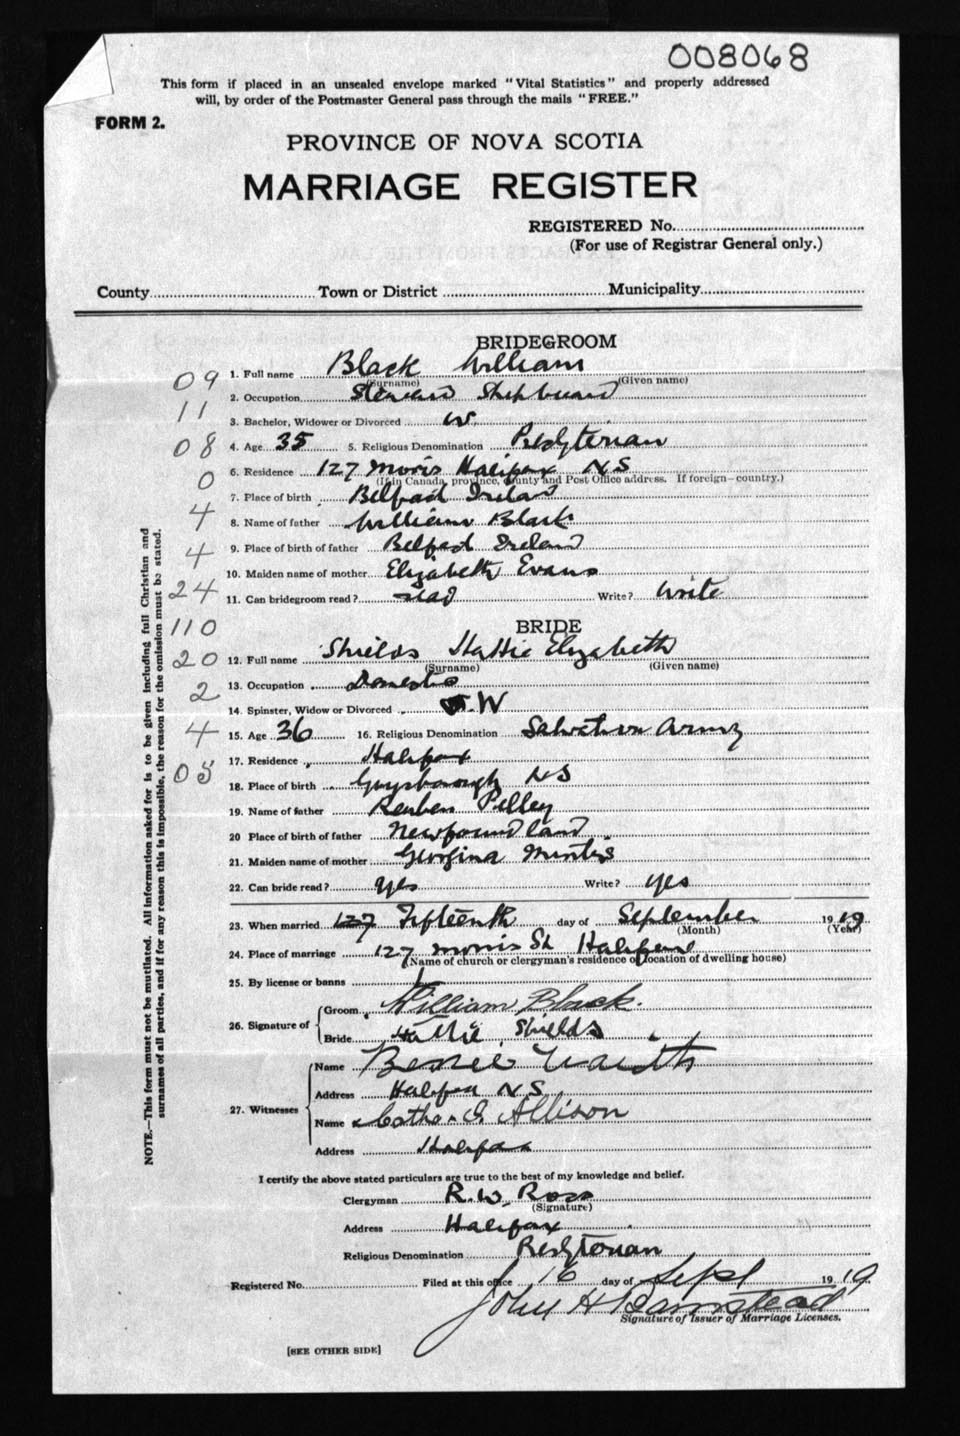 008068
This form if placed in an unsealed envelope marked "Vital Statistics" and properly addressed
will, by order of the Postmaster General pass through the mails "FREE."
FORM 2.
PROVINCE OF NOVA SCOTIA
MARRIAGE REGISTER
REGISTERED No.
(For use of Registrar General only.)
County Town or District Municipality
BRIDEGROOM
09 1. Full name Black William
(Surname) (Given name)
2. Occupation Steward Shipboard
11 3. Bachelor, Widower or Divorced W.
08 4. Age 35 5. Religious Denomination Presbyterian
0 6. Residence 127 Morris Halifax NS
(If in Canada, province, County and Post Office address. If foreign—country.)
7. Place of birth Belfast Ireland
4 8. Name of father William Black
4 9. Place of birth of father Belfast Ireland
10. Maiden name of mother Elizabeth Evans
24 11. Can bridegroom read? read Write? write
110 BRIDE
20 12. Full name Shields Hattie Elizabeth
(Surname) (Given name)
2 13. Occupation Domestic
14. Spinster, Widow or Divorced W
4 15. Age 36 16. Religious Denomination Salvation Army
17. Residence Halifax
05 18. Place of birth Guysborough NS
19. Name of father Reuben Pelley
20 Place of birth of father Newfoundland
21. Maiden name of mother Georgina
22. Can bride read? Yes Write? yes
23. When married 127 Fifteenth day of September 1919
(Month) (Year)
24. Place of marriage 127 Morris St Halifax
(Name of church or clergyman's residence or location of dwelling house)
25. By license or banns
26. Signature of Groom William Black.
Bride Hattie Shields
27. Witnesses
Name
Address Halifax NS
Name Allison
Address Halifax
I certify the above stated particulars are true to the best of my knowledge and belief.
Clergyman R. W. Ross
(Signature)
Address Halifax
Religious Denomination Presbyterian
Registered No. Filed at this office 16 day of Sept 1919.
John H Barnstead
Signature of Issuer of Marriage Licenses.
[SEE OTHER SIDE]
NOTE.—This form must not be mutilated. All information asked for is to be given including full Christian and
surnames of all parties, and if for any reason this is impossible, the reason for the omission must be stated.